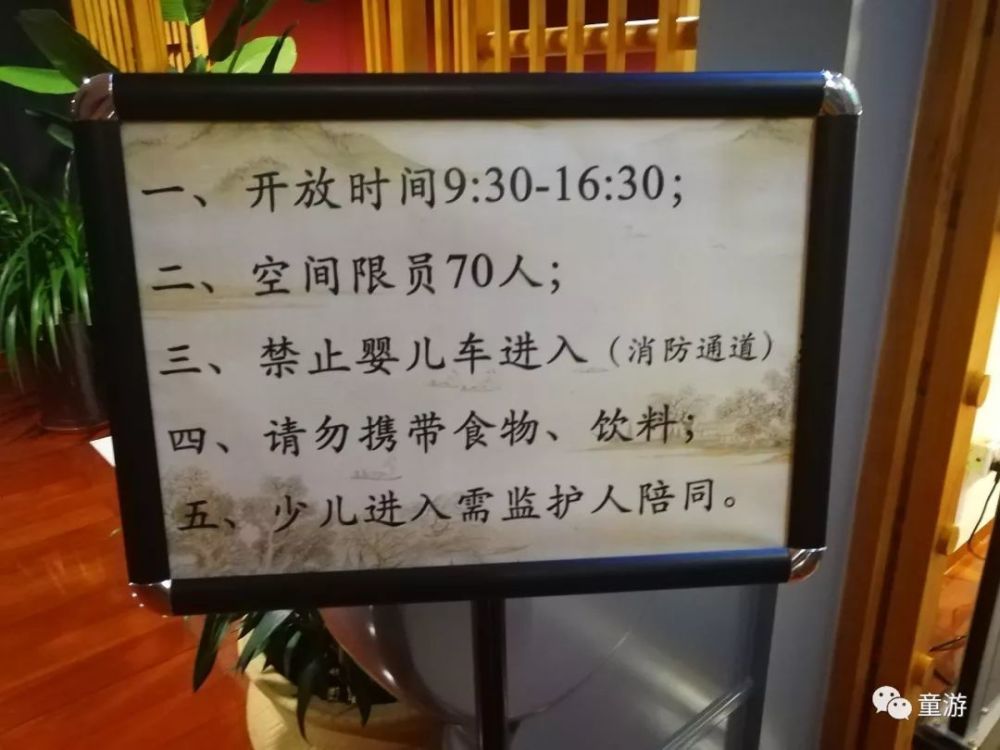 一、开放时间9:30-16:30；
二、空间限员70人；
三、禁止婴儿车进入（消防通道）；
四、请勿携带食物、饮料；
五、少儿进入需监护人陪同。
童游